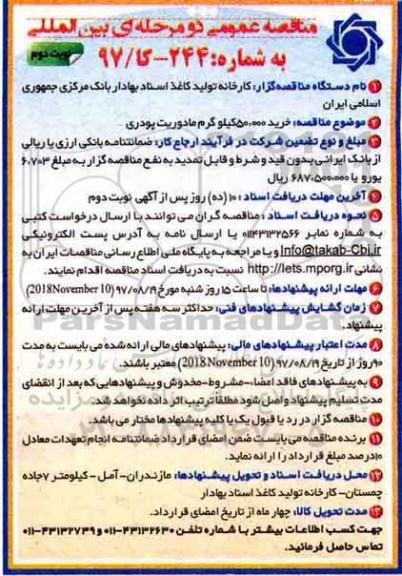 مناقصه عمومی دو مرحله‌ای بین المللی
به شماره: ۲۴۴-کا/۹۷
نوبت دوم
۱ نام دستگاه مناقصه‌گزار: کارخانه تولید کاغذ اسناد بهادار بانک مرکزی جمهوری
اسلامی ایران
۲ موضوع مناقصه: خرید ۵۰,۰۰۰کیلو گرم مادوریت پودری
۳ مبلغ و نوع تضمین شرکت در فرآیند ارجاع کار: ضمانتنامه بانکی ارزی یا ریالی
از بانک ایرانی بدون قید و شرط و قابل تمدید به نفع مناقصه گزار به مبلغ ۶,۷۰۳
یورو یا ۶۸۷,۵۰۰,۰۰۰ ریال
۴ آخرین مهلت دریافت اسناد: ۱۰ (ده) روز پس از آگهی نوبت دوم
۵ نحوه دریافت اسناد: مناقصه گران می توانند با ارسال درخواست کتبی
به شماره نمابر ۰۱۱۴۳۱۳۲۵۶۶ یا ارسال نامه به آدرس پست الکترونیکی
Info@takab-Cbi.ir و یا مراجعه به پایگاه ملی اطلاع رسانی مناقصات ایران به
نشانی http://iets.mporg.ir نسبت به دریافت اسناد مناقصه اقدام نمایند.
۶ مهلت ارائه پیشنهادها: تا ساعت ۱۵ روز شنبه مورخ ۹۷/۰۸/۱۹ (2018 November 10)
۷ زمان گشایش پیشنهادهای فنی: حداکثر سه هفته پس از آخرین مهلت ارائه
پیشنهاد.
۸ مدت اعتبار پیشنهادهای مالی: پیشنهادهای مالی ارائه شده می بایست به مدت
۹۰روز از تاریخ ۹۷/۰۸/۱۹ (2018 November 10) معتبر باشند.
۹ به پیشنهادهای فاقد امضاء-مشروط-مخدوش و پیشنهادهایی که بعد از انقضای
مدت تسلیم پیشنهاد واصل شود مطلقاً ترتیب اثر داده نخواهد شد.
۱۰ مناقصه گزار در رد یا قبول یک یا کلیه پیشنهادها مختار می باشد.
۱۱ برنده مناقصه می بایست ضمن امضای قرارداد ضمانتنامه انجام تعهدات معادل
۱۰درصد مبلغ قرارداد را ارائه نماید.
۱۲ محل دریافت اسناد و تحویل پیشنهادها: مازندران-آمل-کیلومتر ۷جاده
چمستان-کارخانه تولید کاغذ اسناد بهادار
۱۳ مدت تحویل کالا: چهار ماه از تاریخ امضای قرارداد.
جهت کسب اطلاعات بیشتر با شماره تلفن ۴۳۱۳۲۶۳۰-۰۱۱ و ۴۳۱۳۲۷۳۹-۰۱۱
تماس حاصل فرمائید.
ParsNamadData